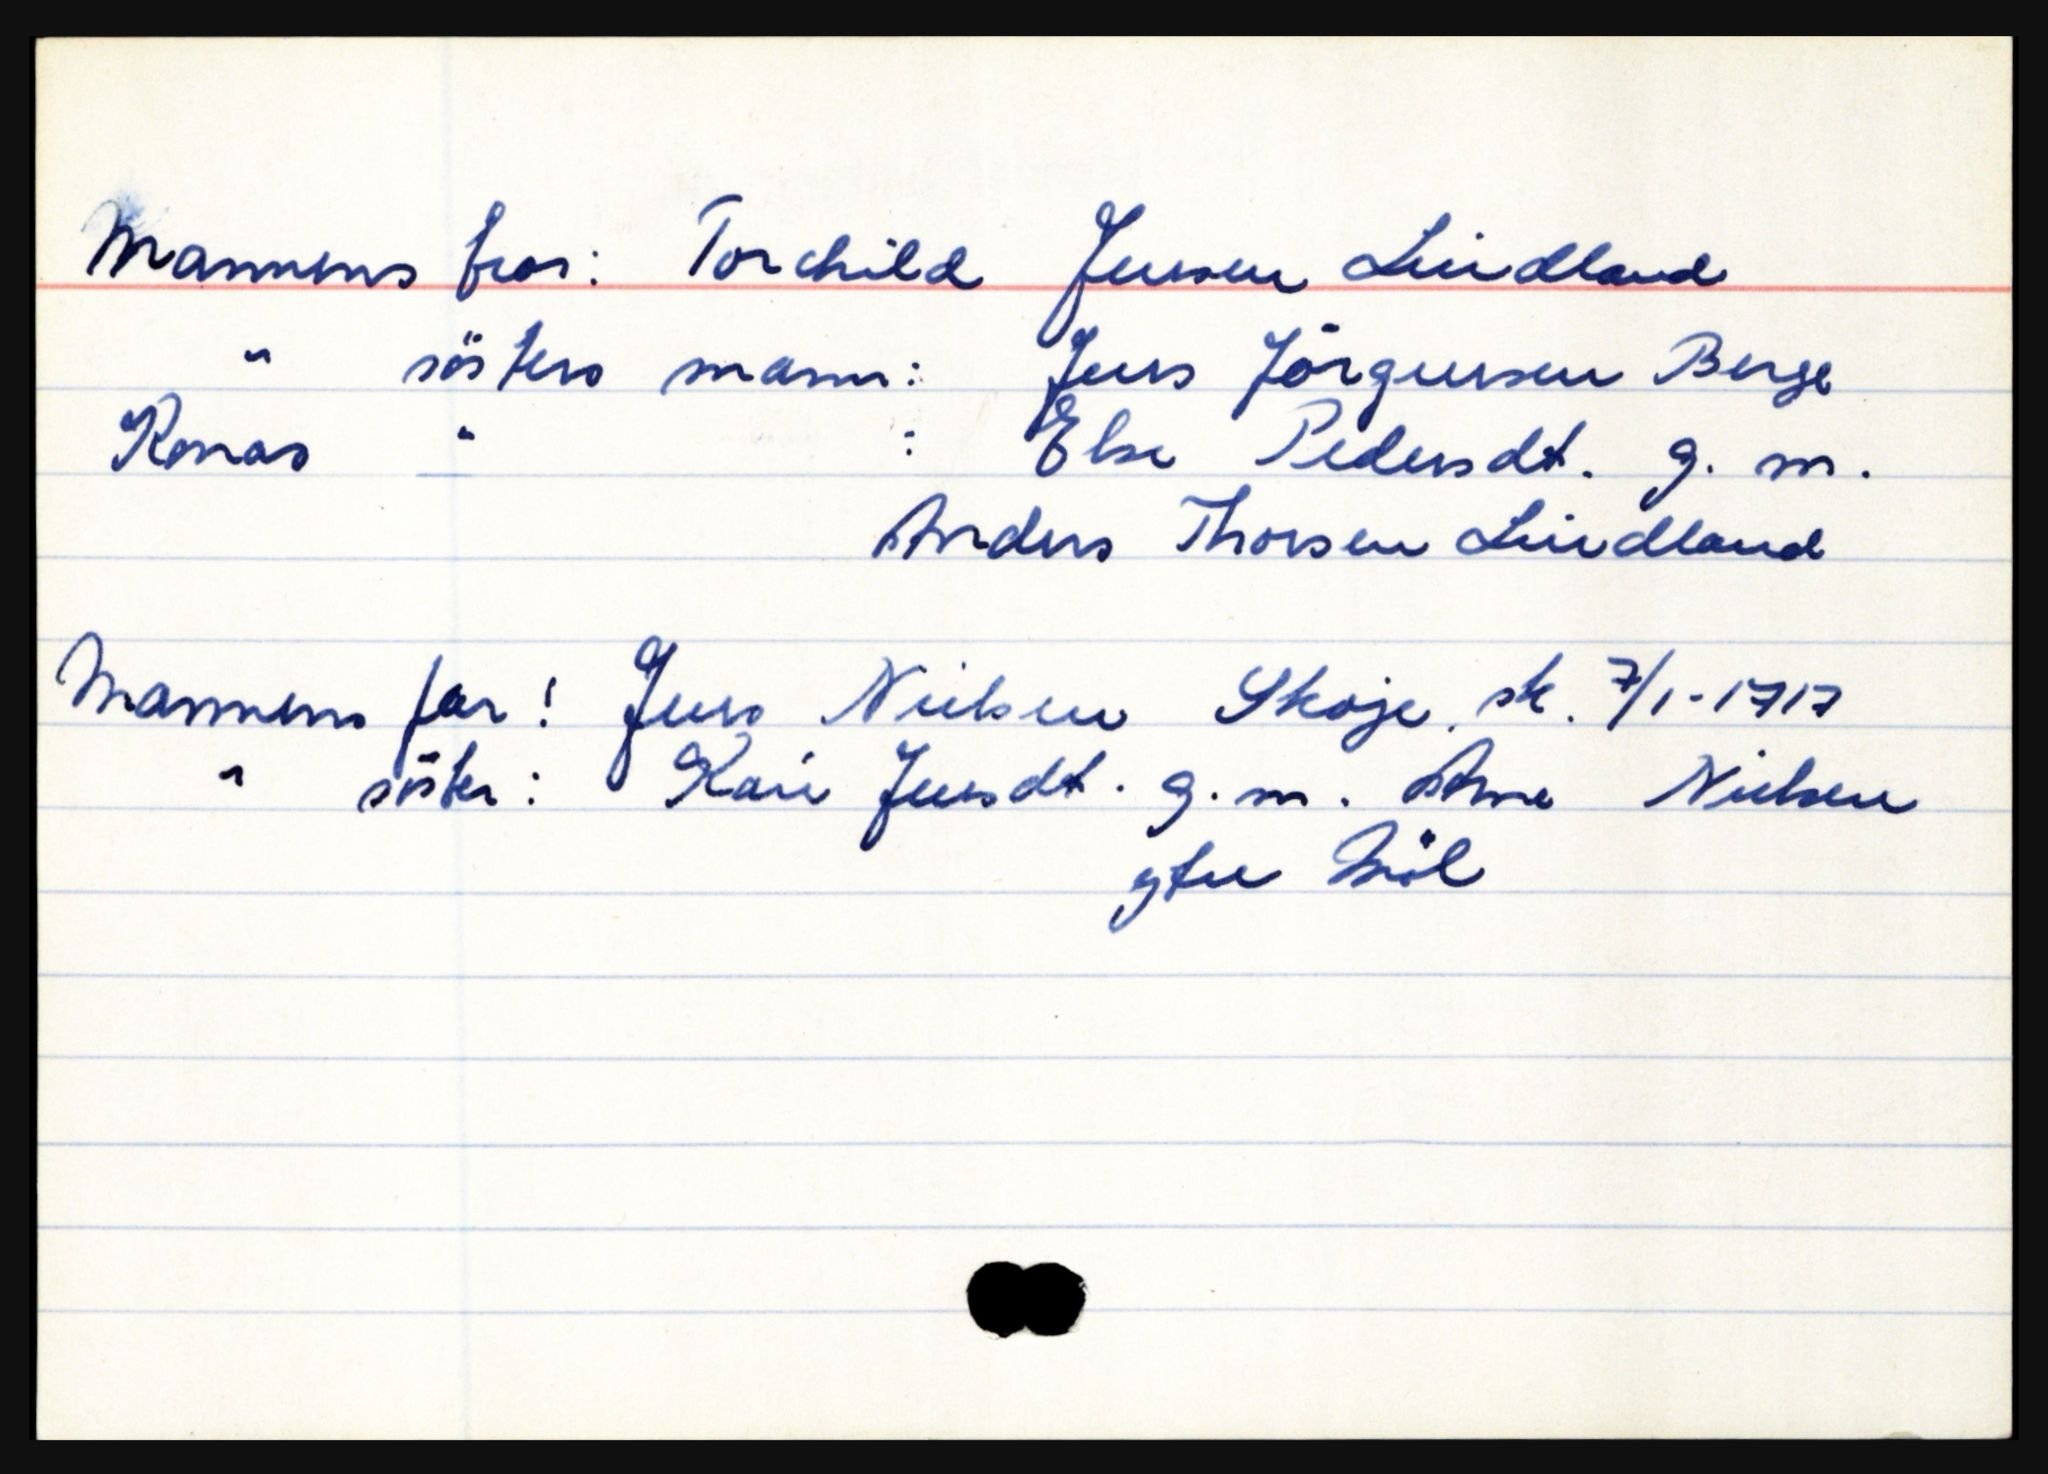 Mannens bror: Torchild Jensen Lindland
" sösters mann: Jens Jörgensen Berge
Konas " : Else Pedersdt. g. m.
Anders Thorsen Lindland
Mannens far: Jens Nielsen Skoje, sk. 7/1-1717
" söster: Kari Jensdt. g. m. Arne Nielsen
ytre Möl